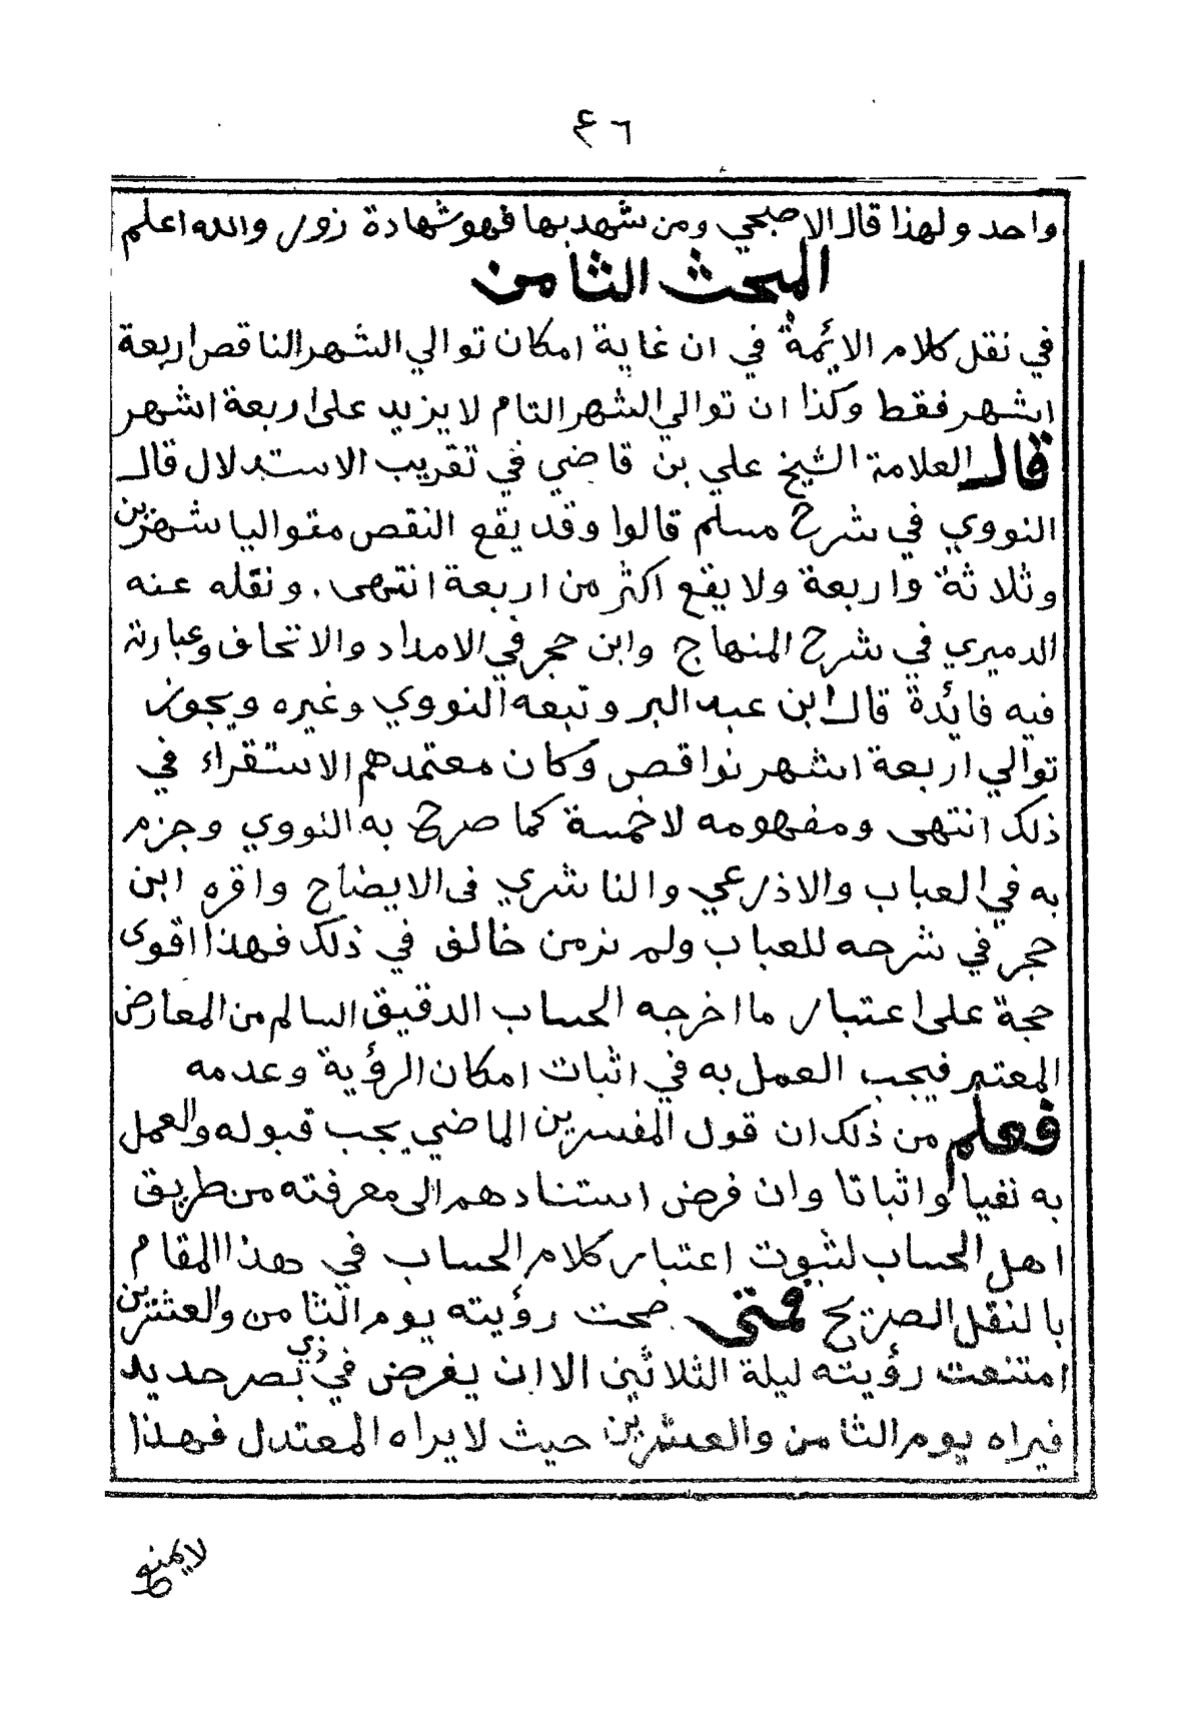 ٤٦
واحد ولهذا قال الاصبحي ومن شهد بها فهو شهادة زور والله اعلم
المبحث الثامن
في نقل كلام الايئمة في ان غاية امكان توالي الشهر الناقص اربعة
اشهر فقط وكذا ان توالي الشهر التام لا يزيد على اربعة اشهر
قال العلامة الشيخ علي بن قاضي في تقريب الاستدلال قال
النووي في شرح مسلم قالوا وقد يقع النقص متواليا شهرين
وثلاثة واربعة ولا يقع اكثر من اربعة انتهى . ونقله عنه
الدميري في شرح المنهاج وابن حجر في الامداد والاتحاف وعبارته
فيه فائدة قال ابن عبد البر وتبعه النووي وغيره ويجوز
توالي اربعة اشهر نواقص وكان معتمدهم الاستقراء في
ذلك انتهى ومفهومه لا خمسة كما صرح به النووي وجزم
به في العباب والاذرعي والناشري فى الايضاح واقره ابن
حجر في شرحه للعباب ولم نر من خالف في ذلك فهذا اقوى
حجة على اعتبار ما اخرجه الحساب الدقيق السالم من المعارض
المعتبر فيجب العمل به في اثبات امكان الرؤية وعدمه
فعلم من ذلك ان قول المفسرين الماضي يجب قبوله والعمل
به نفيا واثباتا وان فرض استنادهم الى معرفته من طريق
اهل الحساب لثبوت اعتبار كلام الحساب في هذا المقام
بالنقل الصريح فمتى صحت رؤيته يوم الثامن والعشرين
امتنعت رؤيته ليلة الثلاثين الا ان يفرض في ذي بصر حديد
فيراه يوم الثامن والعشرين حيث لا يراه المعتدل فهذا
لا يمنع